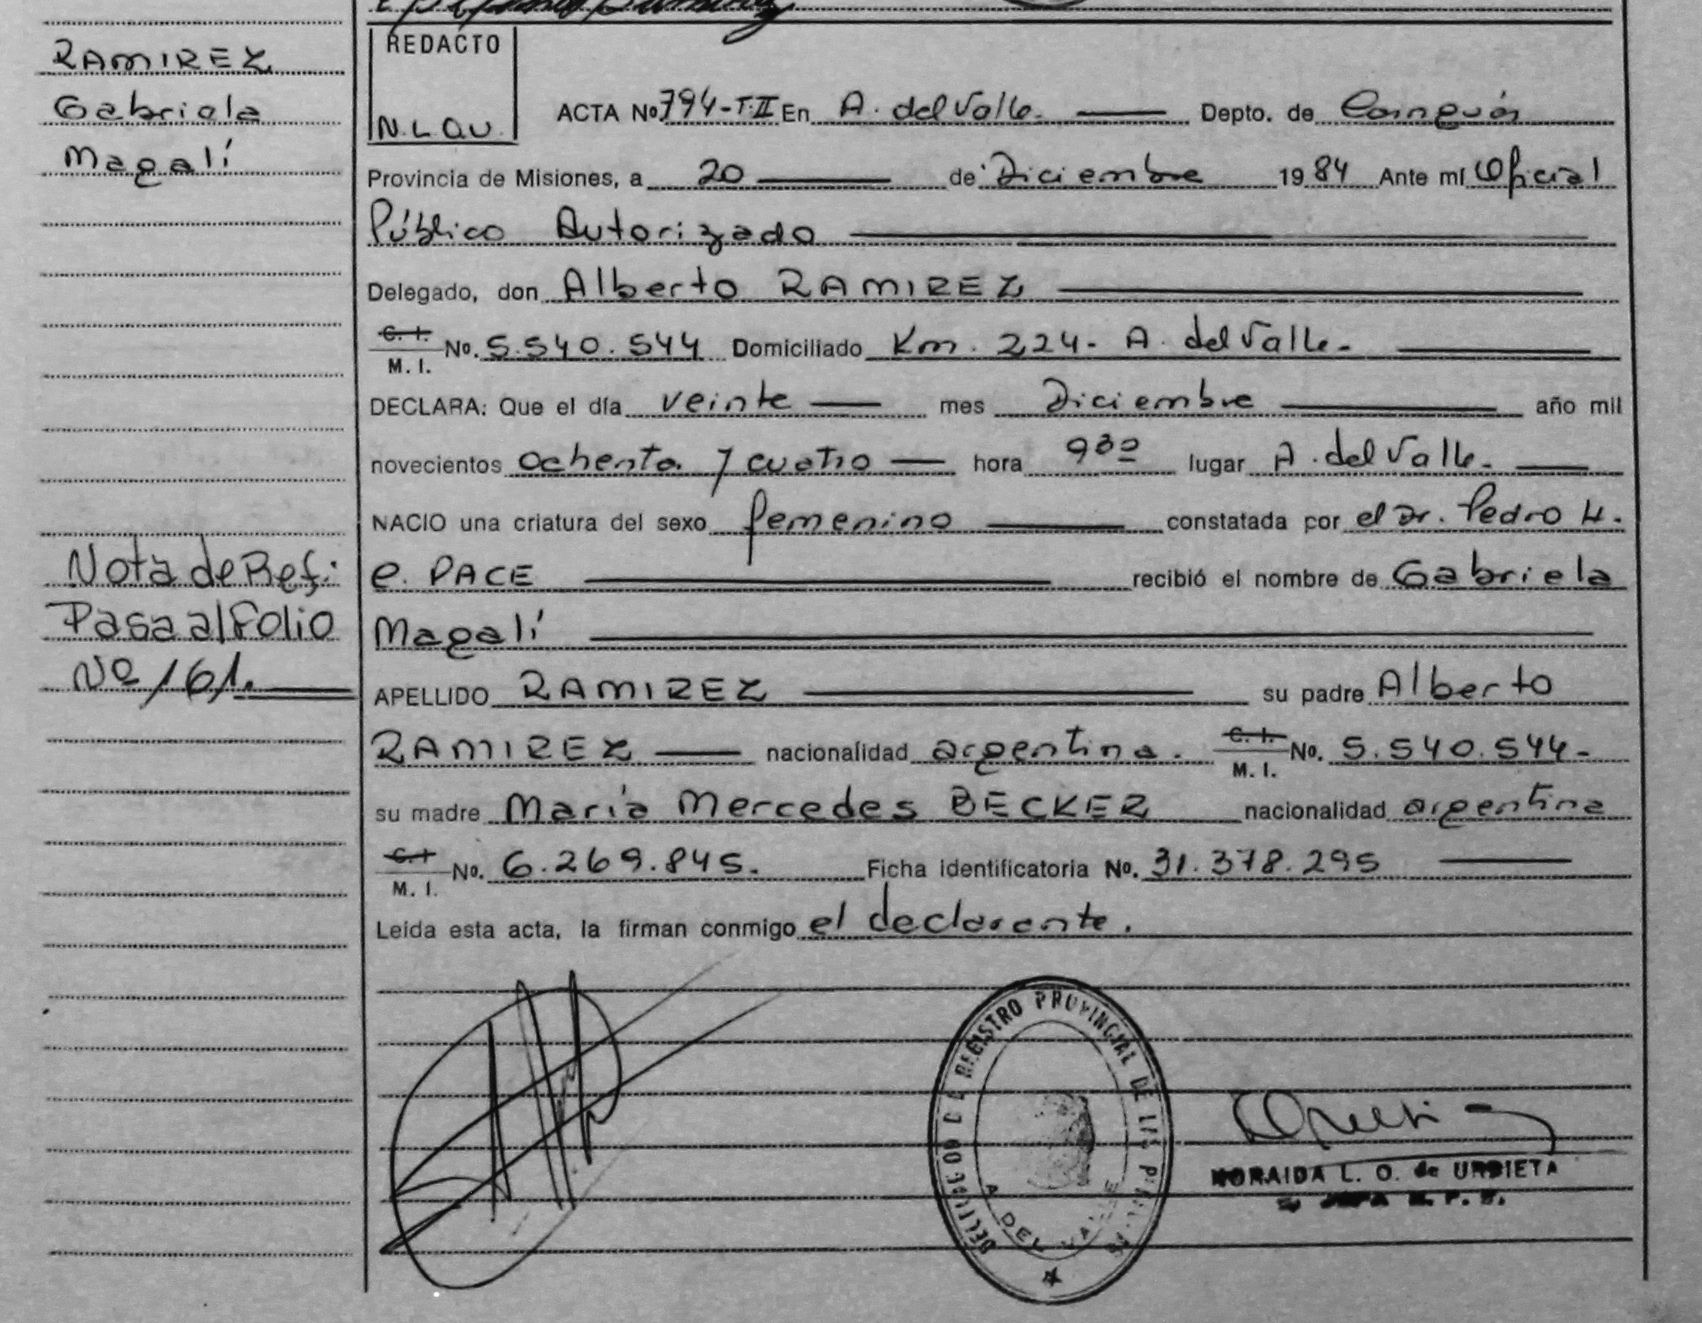 RAMIREZ
Gabriela
Magalí
Nota de Ref:
Pasa al Folio
Nº 161.
REDACTO
N.L.O.U.
ACTA No 794-T.II En A. del Valle. Depto. de Cainguás
Provincia de Misiones, a 20 de Diciembre 19 84 Ante mí Oficial
Público Autorizado
Delegado, don Alberto RAMIREZ
C. I.
M. I. No. 5.540.544 Domiciliado Km. 224- A. del Valle-
DECLARA: Que el día veinte mes Diciembre año mil
novecientos ochenta y cuatro hora 9 30 lugar A. del Valle-
NACIO una criatura del sexo femenino constatada por el Dr. Pedro H.
e. PACE recibió el nombre de Gabriela
Magalí
APELLIDO RAMIREZ su padre Alberto
RAMIREZ nacionalidad argentina. C. I.
M. I. No. 5.540.544-
su madre María Mercedes BECKER nacionalidad argentina
C. I
M. I. No. 6.269.845. Ficha identificatoria No. 31.378.295
Leída esta acta, la firman conmigo el declarante.
REGISTRO PROVINCIAL DE LAS
A. DEL VALLE
NORAIDA L. O. de URBIETA
JEFA R. P. P.